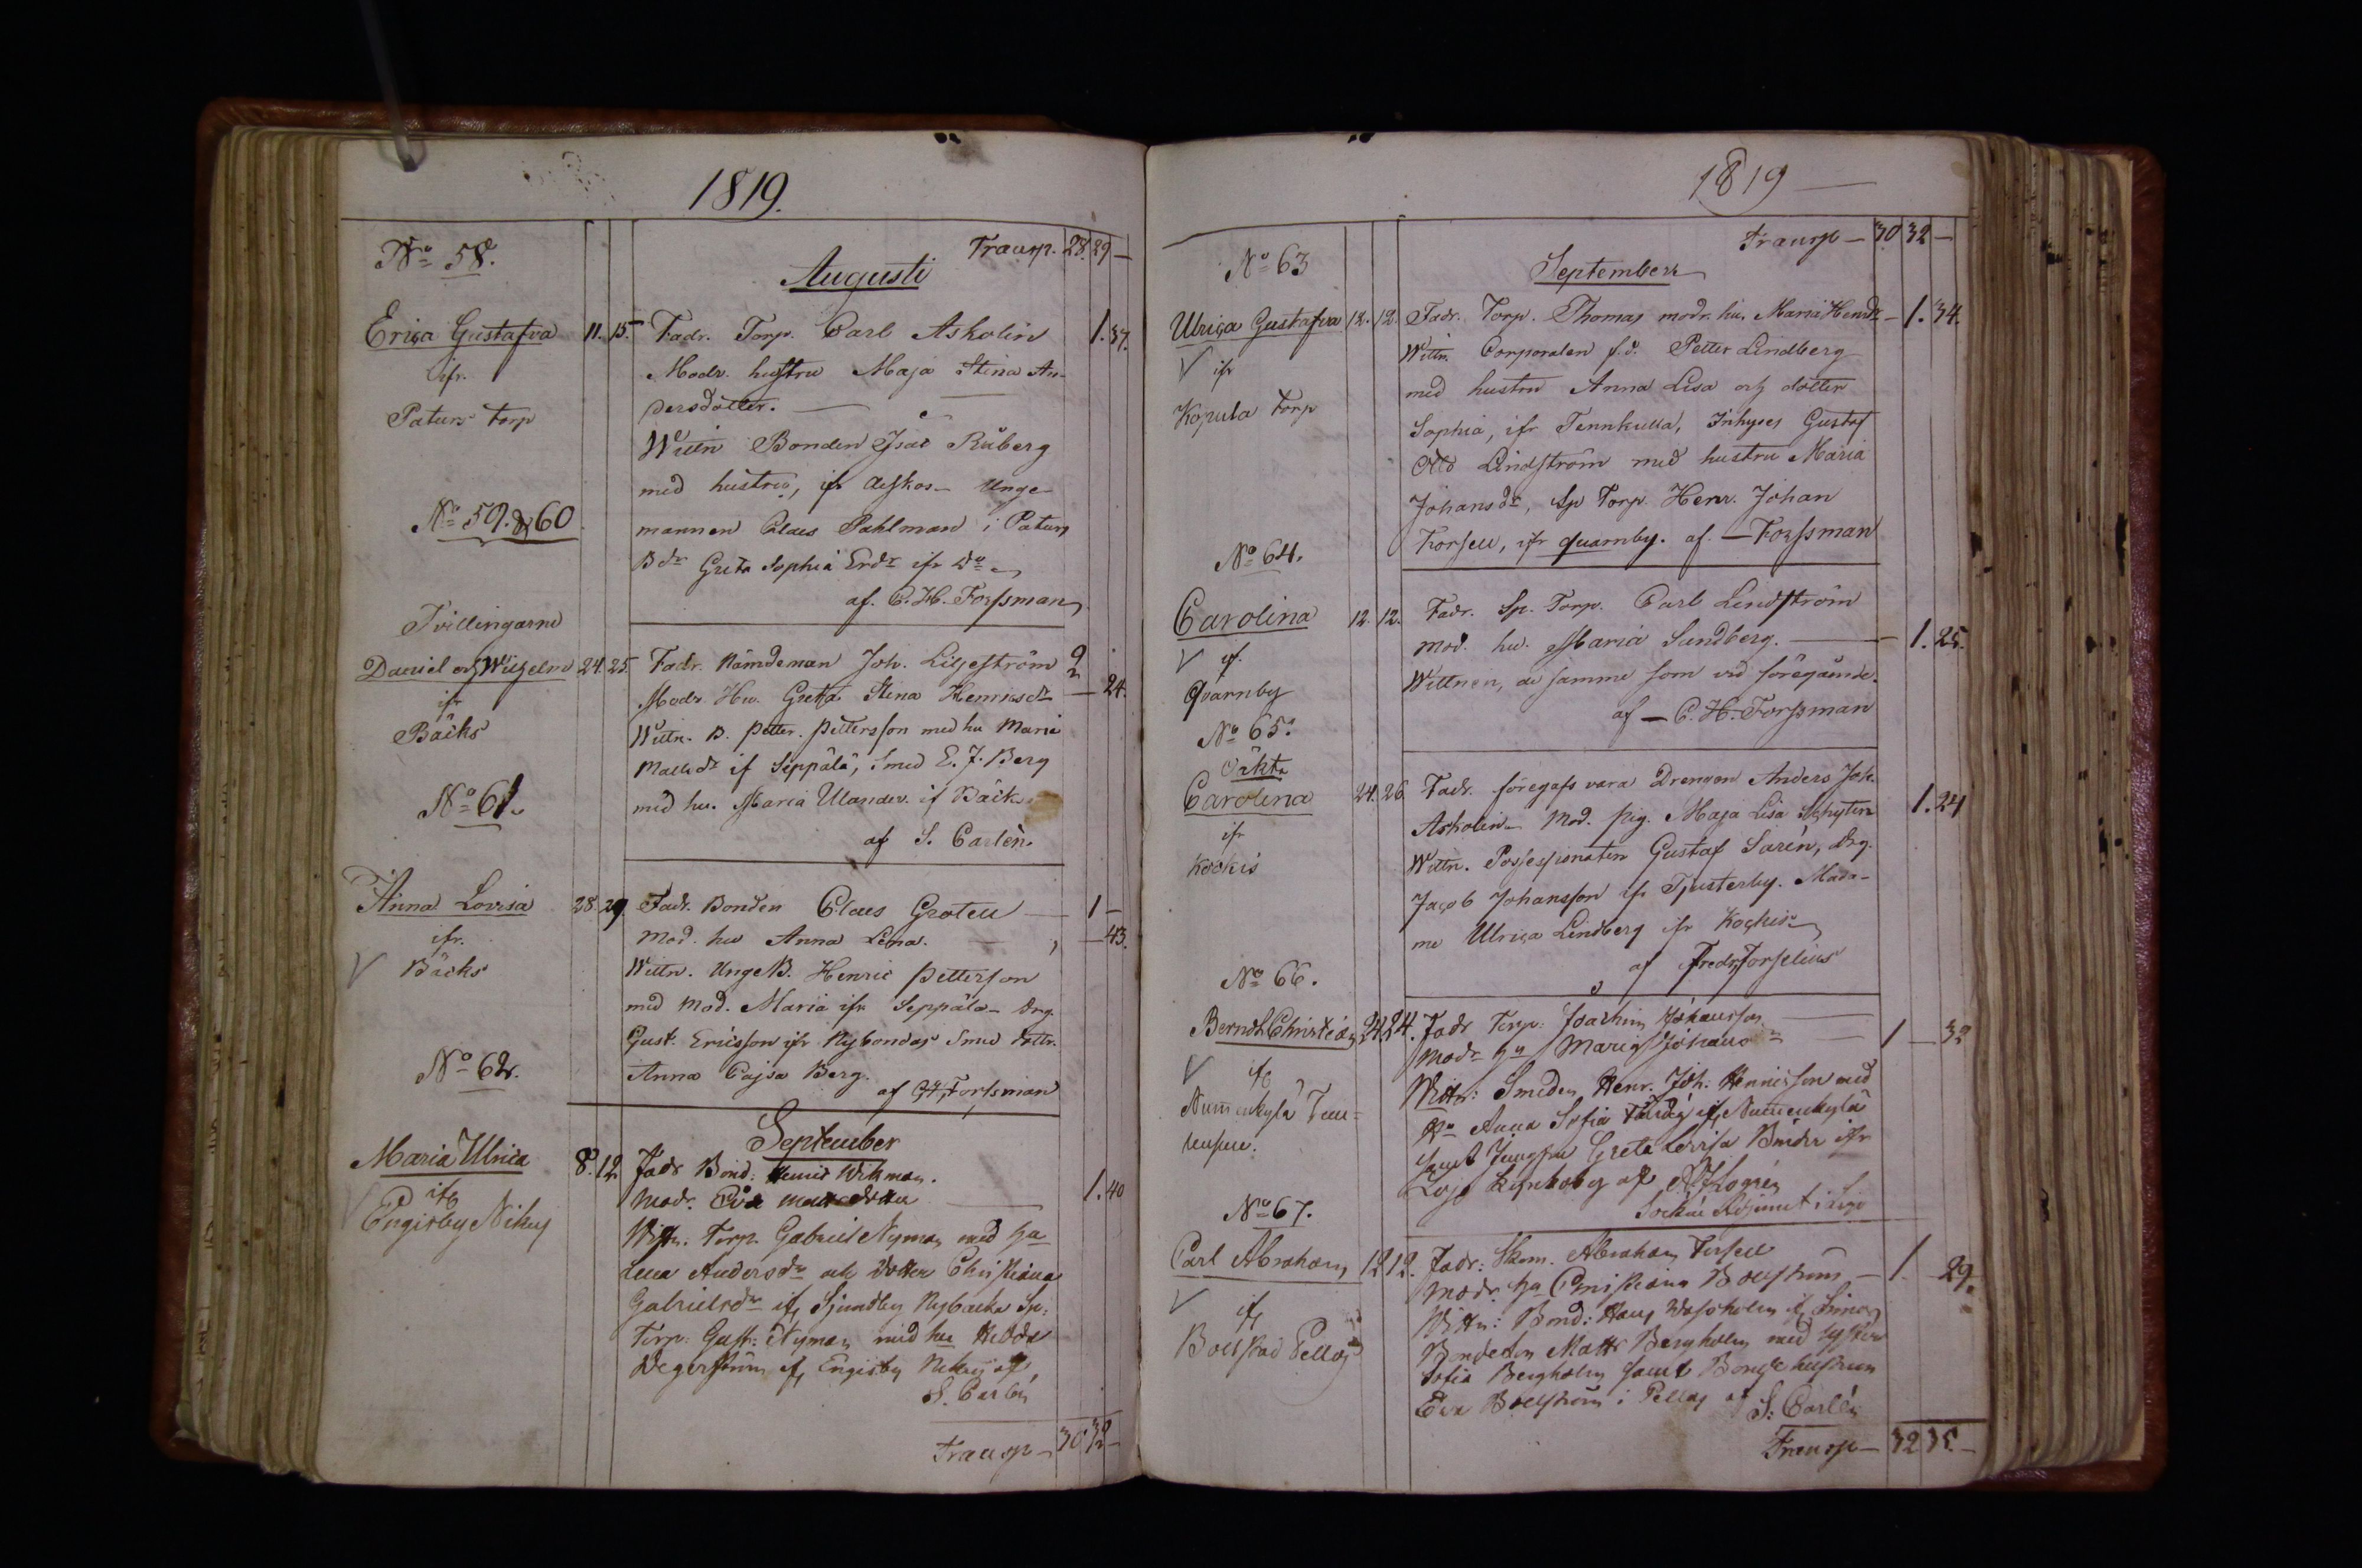 1819.
Transp. 28. 29 —
Augusti
No 58.
Erica Gustafva 11. 15. Fadr. Torp. Carl Askolin 1. 37.
ifr. Modr. hustru Maja Stina An-
Paturs torp dersdotter. —
Wittn Bonden Isac Ruberg
med hustru, ifr Unge-
No 59. & 60 mannen Claes Pahlman i Paturs
Bdr Greta Sophia Erdr ifr Do
af. C. H. Forssman
Tvillingarne
Daniel och Wilhelm 24. 25. Fadr. Nämdeman Joh. Liljeström 2
ifr Modr. Hu. Greta Stina Henricsdr — 24.
Bäcks Wittn. B. Petter Pettersson med hu Maria
Mattsdr if Seppälä, Smed E. J. Berg
No 61. med hu. Maria Ulander. if Bäcks
af S. Carlén.
Anna Lovisa 28. 29. Fadr. Bonden Claes Grotell — 1 —
ifr. Mod. hu Anna Lena. — 43.
Bäcks Wittn. Unge B. Henric Petterson
med Mod. Maria ifr Seppälä — Drg.
Gust. Ericsson ifr Nybondas Smed dottr.
No 62. Anna Cajsa Berg.
af CH, Forssman
September
Maria Ulrica 8. 12. Fadr Bond: Henric Wikman.
ifr Modr. Eva Mattsdotter — 1. 40
Engisby Nikus Wittn. Torp. Gabriel Nyman med ha
Lena Andersdr och Dotter Christiana
Gabrielsdr ifr Sjundby Nybacka Sp:
Torp: Gust: Nyman med hu Hedda
Degerström if Engisby Nikus af
S. Carlén
Transp — 30 32 —
1819 —
Transp — 30 32 —
No 63
September
Ulrica Gustafva 12. 12. Fadr. Torp. Thomas modr. hu. Maria Henrdr — 1. 34.
ifr Wittn. Corporalen f.d. Petter Lindberg
Kopula torp med hustru Anna Lisa och dotter
Sophia, ifr Tennkulla, Inhyses Gustaf
Otto Lindström med hustru Maria
Johansdr, Sp Torp. Henr. Johan
No 64. Forsell, ifr Quarnby. af. — Forssman
Carolina 12. 12. Fadr. Sp. Torp. Carl Lindström
if. Mod. hu. Maria Sundberg. — 1. 25.
Qvarnby Wittnen, de samme som vid föregånde.
af — C. H. Forssman
No 65.
Oäkta
Carolina 24. 26 Fadr. föregafs vara Drengen Anders Joh.
ifr Askolin — Mod. Pig. Maja Lisa Schytin 1. 24
Kockis Wittn. Possessionaten Gustaf Sarén, Drg.
Jacob Johansson ifr Tjusterby. Mada-
me Ulrica Lindberg ifr Kockis
af Fredr. Forselius
No 66.
Berndt Christian 24. 24. Fadr Torp: Joachim Johansson —
ifr Modr ha Maria Johansdr — 1 — 32
Nummenkylä Wittn: Smeden Henr. Joh: Henricsson med
Ha Anna Sofia if Nummenkylä
samt Jungfru Greta Lovisa ifr
Lojo Kyrkoby af
Sockne Adjunct i Lojo
No 67.
Carl Abraham 12 12. Fadr: Abraham Forsell
ifr Modr. ha Christiana Bollström — 1. 29.
Bollstad Pellas Wittn: Bond: Hans if
Bondeson Matts Bergholm med syster
Sofia Bergholm samt Bonde hustrun
Eva Bollström i Pellas af S: Carlén
Transp — 32 35 —